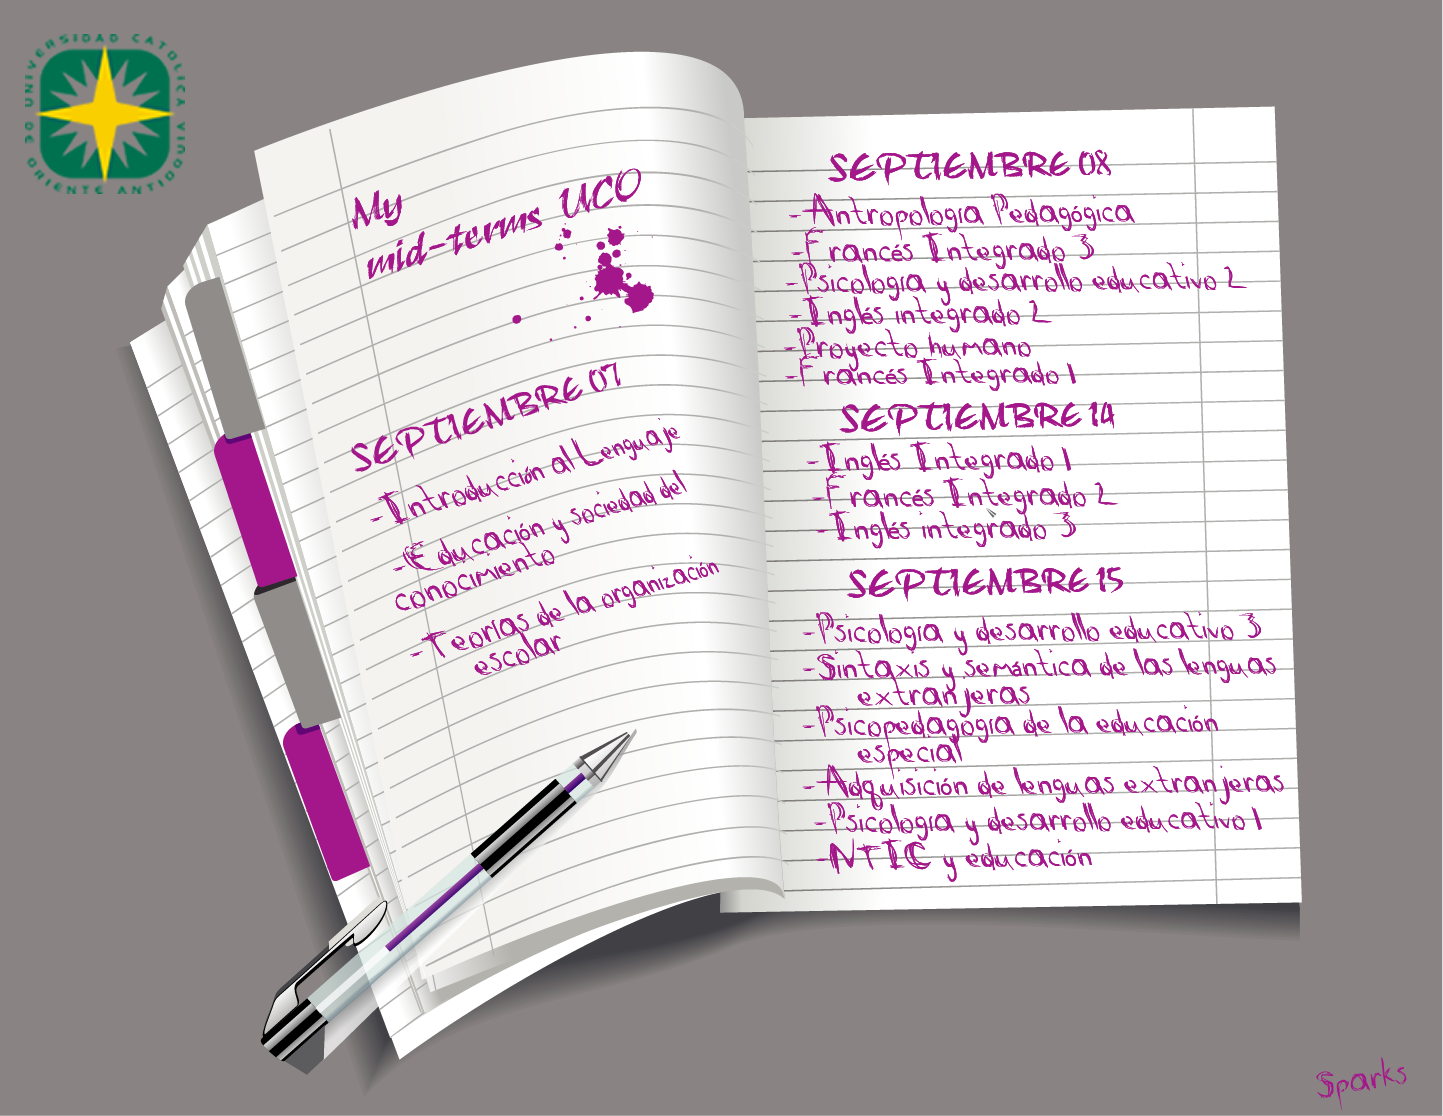 UNIVERSIDAD CATOLICA DE ORIENTE
My
mid-terms UCO
SEPTIEMBRE 07
-Introducción al Lenguaje
-Educación y sociedad del
conocimiento
-Teorías de la organización
escolar
SEPTIEMBRE 08
-Antropología Pedagógica
-Francés Integrado 3
-Psicología y desarrollo educativo 2
-Inglés integrado 2
-Proyecto humano
-Francés Integrado 1
SEPTIEMBRE 14
-Inglés Integrado 1
-Francés Integrado 2
-Inglés integrado 3
SEPTIEMBRE 15
-Psicología y desarrollo educativo 3
-Sintaxis y semántica de las lenguas
extranjeras
-Psicopedagogía de la educación
especial
-Adquisición de lenguas extranjeras
-Psicología y desarrollo educativo 1
-NTIC y educación
Sparks